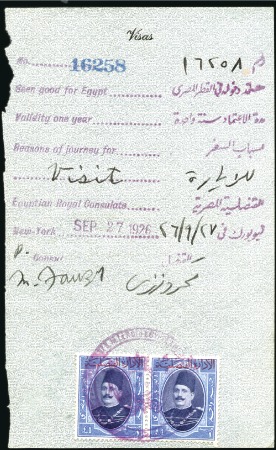 Visas
No. 16258 ١٦٢٥٨ رقم
Seen good for Egypt للقطر المصرى
Validity one year مدة الاعتماد سنة واحدة
Reasons of journey for اسباب السفر
Visit للزيارة
Egyptian Royal Consulate القنصلية المصرية
New-York SEP 27 1926 نيويورك فى ٢٦/٩/٢٧
Consul القنصل
M. Fawzi محمود فوزى